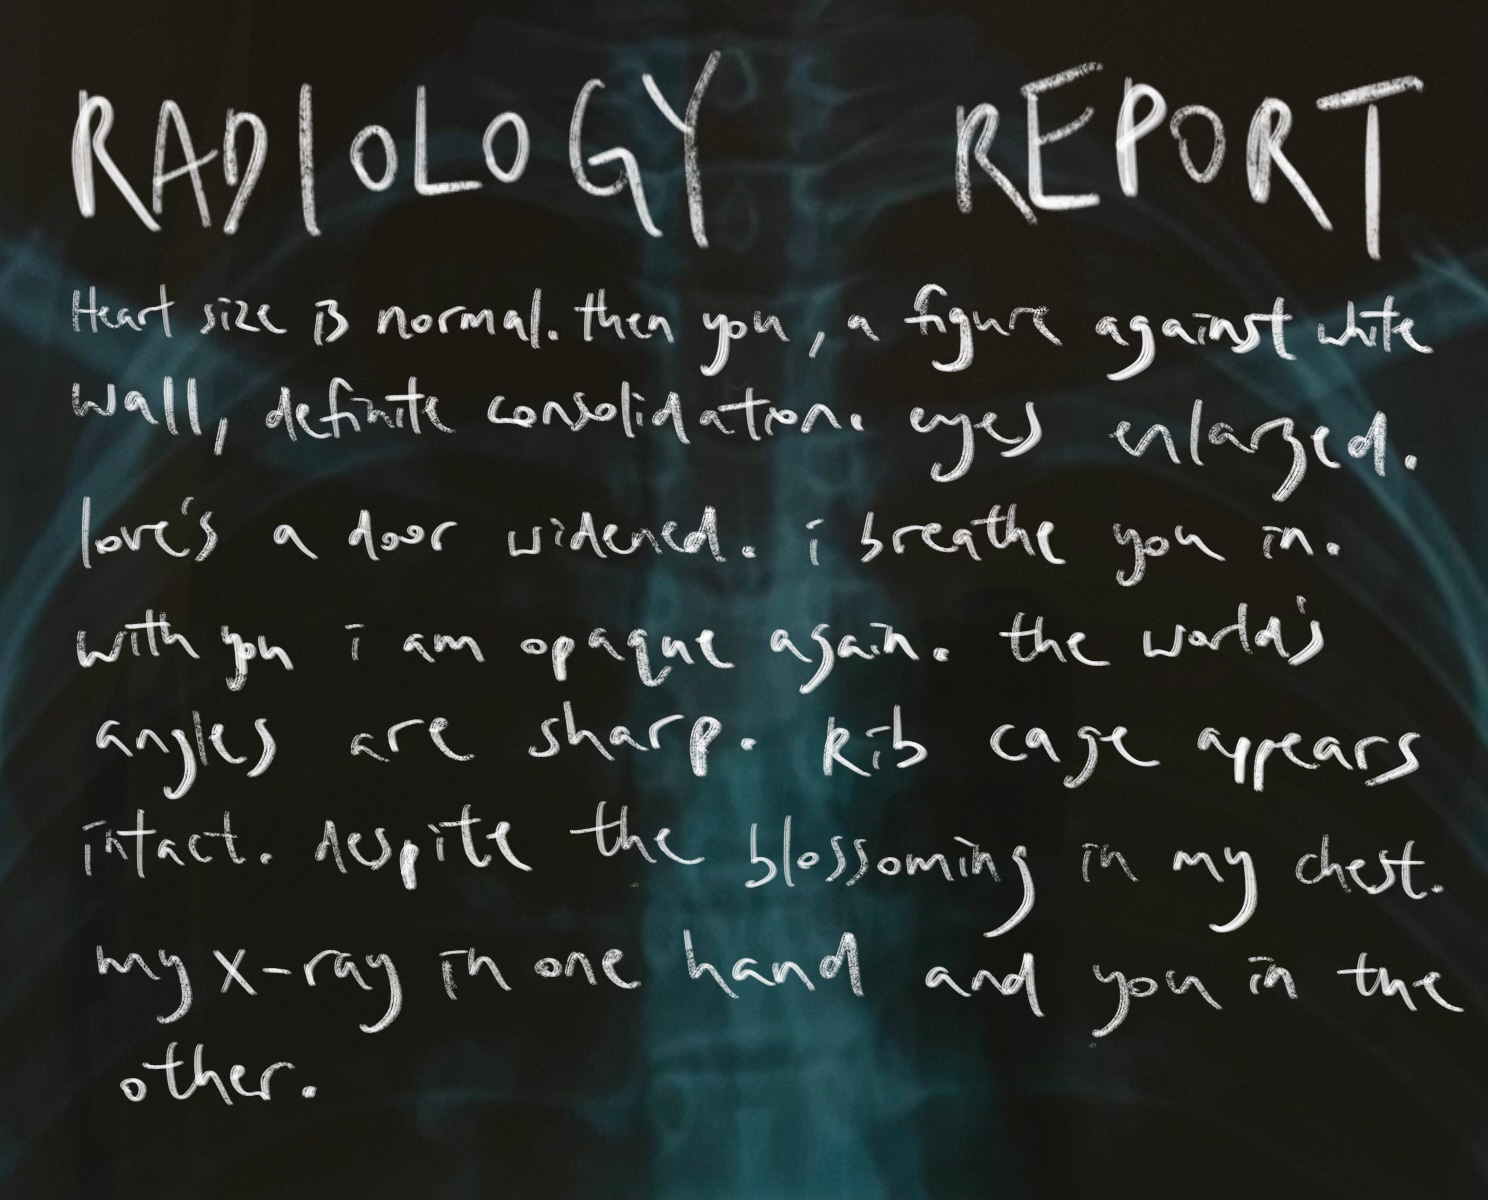 RADIOLOGY REPORT
Heart size is normal. then you, a figure against white
wall, definite consolidation. eyes enlarged.
love's a door widened. i breathe you in.
with you i am opaque again. the world's
angles are sharp. Rib cage appears
intact. despite the blossoming in my chest.
my x-ray in one hand and you in the
other.